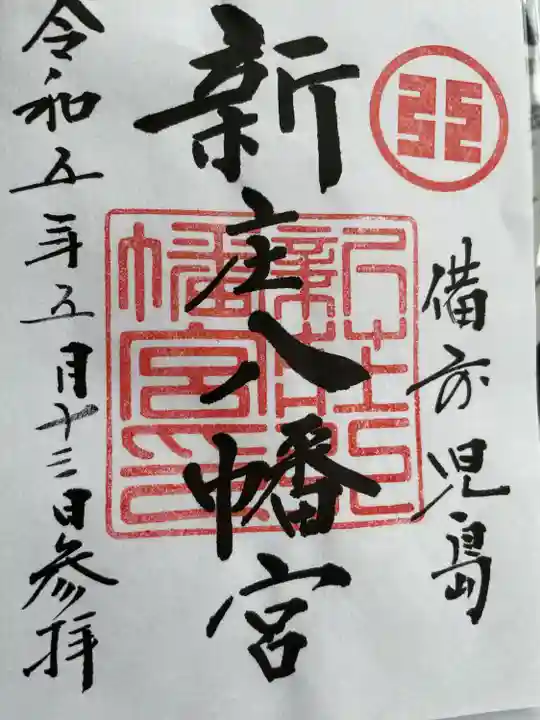 備前児島
新庄八幡宮
新荘八幡宮印
令和五年五月十三日参拝